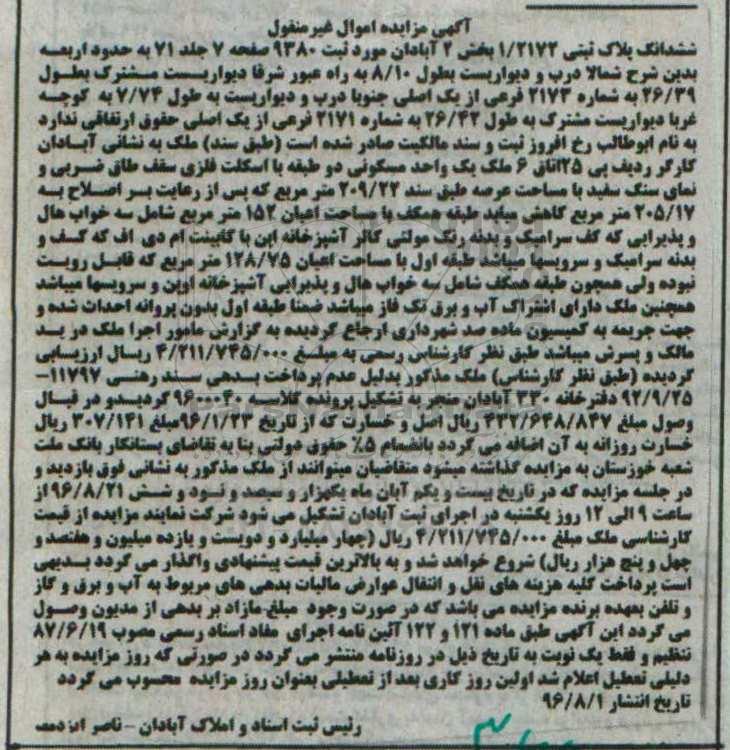 آگهی مزایده اموال غیرمنقول
ششدانگ پلاک ثبتی ۱/۲۱۷۲ بخش ۲ آبادان مورد ثبت ۹۳۸۰ صفحه ۷ جلد ۷۱ به حدود اربعه
بدین شرح شمالا درب و دیواریست بطول ۸/۱۰ به راه عبور شرقا دیواریست مشترک بطول
۲۶/۳۹ به شماره ۲۱۷۳ فرعی از یک اصلی جنوبا درب و دیواریست به طول ۷/۷۴ به کوچه
غربا دیواریست مشترک به طول ۲۶/۴۲ به شماره ۲۱۷۱ فرعی از یک اصلی حقوق ارتفاقی ندارد
به نام ابوطالب رخ افروز ثبت و سند مالکیت صادر شده است (طبق سند) ملک به نشانی آبادان
کارگر ردیف پی ۲۵اتاق ۶ ملک یک واحد مسکونی دو طبقه با اسکلت فلزی سقف طاق ضربی و
نمای سنگ سفید با مساحت عرصه طبق سند ۲۰۹/۲۲ متر مربع که پس از رعایت بر اصلاح به
۲۰۵/۱۷ متر مربع کاهش میابد طبقه همکف با مساحت اعیان ۱۵۲ متر مربع شامل سه خواب هال
و پذیرایی که کف سرامیک و بدنه رنگ مولتی کالر آشپزخانه اپن با کابینت ام دی اف که کف و
بدنه سرامیک و سرویسها میباشد طبقه اول با مساحت اعیان ۱۲۸/۷۵ متر مربع که قابل رویت
نبوده ولی همچون طبقه همکف شامل سه خواب هال و پذیرایی آشپزخانه اوپن و سرویسها میباشد
همچنین ملک دارای اشتراک آب و برق تک فاز میباشد ضمنا طبقه اول بدون پروانه احداث شده و
جهت جریمه به کمیسیون ماده صد شهرداری ارجاع گردیده به گزارش مامور اجرا ملک در ید
مالک و پسرش میباشد طبق نظر کارشناس رسمی به مبلغ ۴/۲۱۱/۷۴۵/۰۰۰ ریال ارزیابی
گردیده (طبق نظر کارشناس) ملک مذکور بدلیل عدم پرداخت بدهی سند رهنی ۱۱۷۹۷-
۹۲/۹/۲۵ دفترخانه ۳۳۰ آبادان منجر به تشکیل پرونده کلاسه ۹۶۰۰۰۴۰ گردیدو در قبال
وصول مبلغ ۴۳۲/۶۴۸/۸۴۷ ریال اصل و خسارت که از تاریخ ۹۶/۱/۲۳مبلغ ۳۰۷/۱۴۱ ریال
خسارت روزانه به آن اضافه می گردد بانضمام ۵٪ حقوق دولتی بنا به تقاضای بستانکار بانک ملت
شعبه خوزستان به مزایده گذاشته میشود متقاضیان میتوانند از ملک مذکور به نشانی فوق بازدید و
در جلسه مزایده که در تاریخ بیست و یکم آبان ماه یکهزار و سیصد و نود و شش ۹۶/۸/۲۱ از
ساعت ۹ الی ۱۲ روز یکشنبه در اجرای ثبت آبادان تشکیل می شود شرکت نمایند مزایده از قیمت
کارشناسی ملک مبلغ ۴/۲۱۱/۷۴۵/۰۰۰ ریال (چهار میلیارد و دویست و یازده میلیون و هفتصد و
چهل و پنج هزار ریال) شروع خواهد شد و به بالاترین قیمت پیشنهادی واگذار می گردد بدیهی
است پرداخت کلیه هزینه های نقل و انتقال عوارض مالیات بدهی های مربوط به آب و برق و گاز
و تلفن بعهده برنده مزایده می باشد که در صورت وجود مبلغ مازاد بر بدهی از مدیون وصول
می گردد این آگهی طبق ماده ۱۲۱ و ۱۲۲ آئین نامه اجرای مفاد اسناد رسمی مصوب ۸۷/۶/۱۹
تنظیم و فقط یک نوبت به تاریخ ذیل در روزنامه منتشر می گردد در صورتی که روز مزایده به هر
دلیلی تعطیل اعلام شد اولین روز کاری بعد از تعطیلی بعنوان روز مزایده محسوب می گردد
تاریخ انتشار ۹۶/۸/۱
رئیس ثبت اسناد و املاک آبادان - ناصر